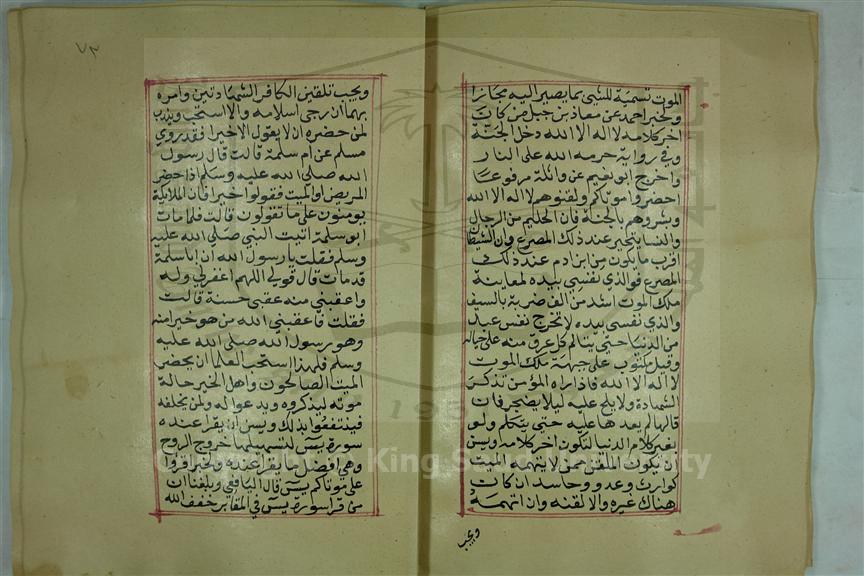 الموت تسمية للشيئ بما يصير اليه مجازا
ولخبر احمد عن معاذ بن جبل من كان
اخر كلامه لا اله الا الله دخل الجنة
وفي رواية حرمه الله على النار
واخرج ابو نعيم عن واثلة مرفوعا
احضروا موتاكم ولقنوهم لا اله الا الله
وبشروهم بالجنة فان الحليم من الرجال
والنسا يتحير عند ذلك المصرع وان الشيطان
اقرب ما يكون من ابن ادم عند ذلك
المصرع فوالذي نفسي بيده لمعاينة
ملك الموت اشد من الف ضربة بالسيف
والذي نفسي بيده لا تخرج نفس عبد
من الدنيا حتى يتالم كل عرق منه على حياله
وقيل مكتوب على جبهة ملك الموت
لا اله الا الله فاذا راه المؤمن تذكر
الشهادة ولا يلح عليه ليلا يضجر فان
قالها لم يعدها عليه حتى يتكلم ولو
بغير كلام الدنيا لتكون اخر كلامه ويسن
ان يكون الملقن ممن لا يتهمه الميت
كوارث وعدو وحاسد ان كان
هناك غيره والا لقنه وان اتهمه
ويجب
٧٣
ويجب تلقين الكافر الشهادتين وامره
بهما ان رجى اسلامه والا استحب ويندب
لمن حضره ان لا يقول الا خيرا فقد روي
مسلم عن ام سلمة قالت قال رسول
الله صلى الله عليه وسلم اذا حضر
المريض او الميت فقولوا خيرا فان الملائكة
يومنون على ما تقولون قالت فلما مات
ابو سلمة اتيت النبي صلى الله عليه
وسلم فقلت يا رسول الله ان ابا سلمة
قد مات قال قولي اللهم اغفر لي وله
واعقبني منه عقبى حسنة قالت
فقلت فاعقبني الله من هو خير امنه
وهو رسول الله صلى الله عليه
وسلم فلهذا استحب العلما ان يحضر
الميت الصالحون واهل الخير حالة
موته ليذكروه ويدعوا له ولمن يخلفه
فينتفعوا بذلك ويسن ان يقرا عنده
سورة يس لتسهيلها خروج الروح
وهي افضل ما يقرا عنده ولخبر اقروا
على موتاكم يس قال اليافعي وبلغنا ان
من قرا سورة يس في المقابر خفف الله
Copyright © King Saud University